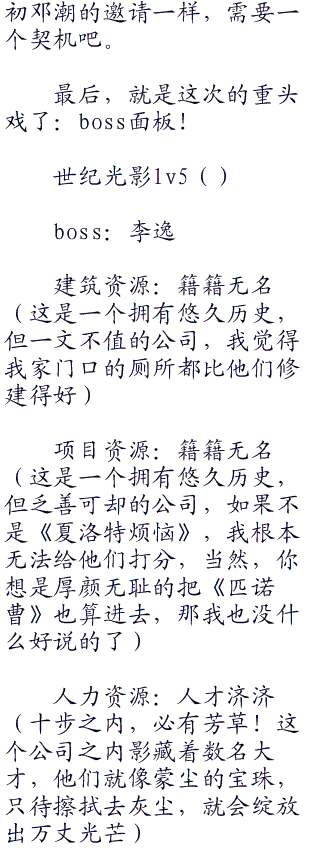 初邓潮的邀请一样，需要一
个契机吧。
最后，就是这次的重头
戏了：boss面板！
世纪光影lv5（）
boss：李逸
建筑资源：籍籍无名
（这是一个拥有悠久历史，
但一文不值的公司，我觉得
我家门口的厕所都比他们修
建得好）
项目资源：籍籍无名
（这是一个拥有悠久历史，
但乏善可却的公司，如果不
是《夏洛特烦恼》，我根本
无法给他们打分，当然，你
想是厚颜无耻的把《匹诺
曹》也算进去，那我也没什
么好说的了）
人力资源：人才济济
（十步之内，必有芳草！这
个公司之内影藏着数名大
才，他们就像蒙尘的宝珠，
只待擦拭去灰尘，就会绽放
出万丈光芒）